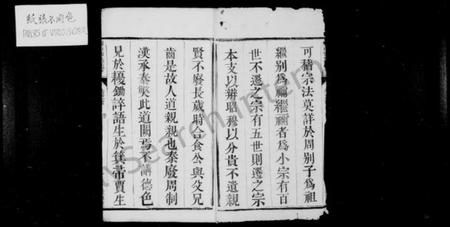 紙張不同色
PAPERS OF VARIOUS COLORS
可稽宗法莫詳於周別子爲祖
繼別爲宗繼禰者爲小宗有百
世不遷之宗有五世則遷之宗
本支以辨昭穆以分貴不遺親
賢不廢長歲時合食公與父兄
齒是故人道親親也秦廢周制
漢承秦弊此道闕焉不講德色
見於耰鋤誶語生於箕帚賈生
MySearch